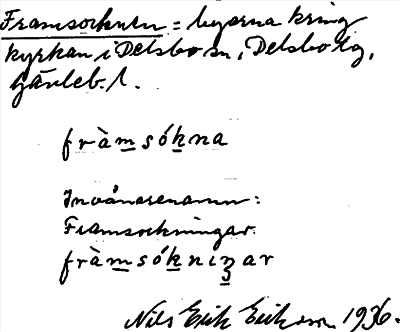 Framsocknen = byarna kring
kyrkan i Delsbo sn, Delsbo tg,
Gävleb. l.
fràm̲sók̲na
Invånarenamn:
Framsockningar.
fràm̲sók̲niŋar
Nils Erik Eriksson 1936.